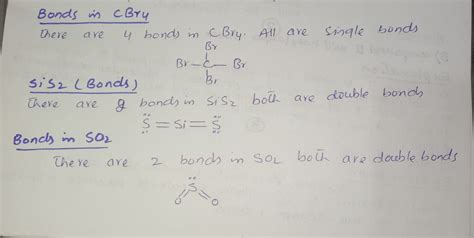 Bonds in CBr4
There are 4 bonds in CBr4. All are single bonds
Br
Br-C-Br
Br
SiS2 (Bonds)
There are 2 bonds in SiS2 both are double bonds
S=Si=S
Bonds in SO2
There are 2 bonds in SO2 both are double bonds
S
O O